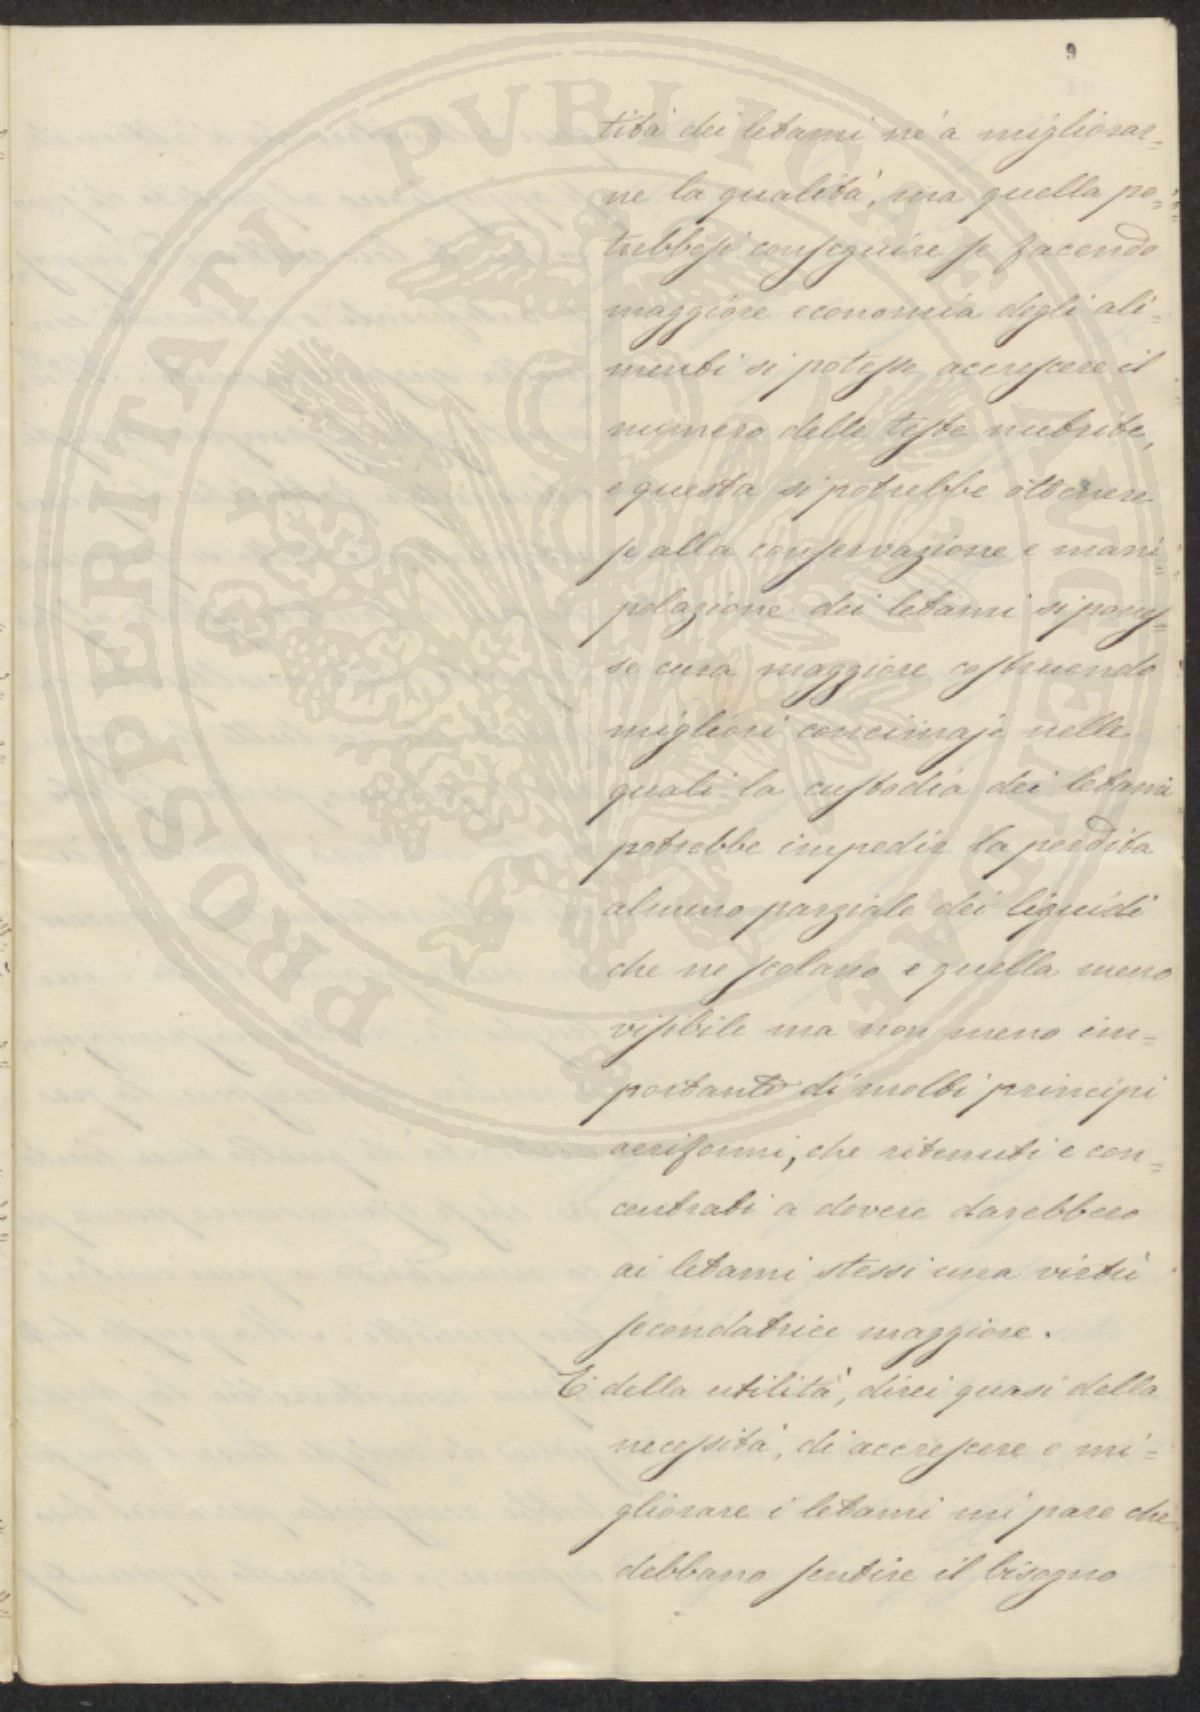 9
tità dei letami nè a migliorar=
ne la qualità, ma quella po=
trebbesi conseguire se facendo
maggiore economia degli ali=
menti si potesse accrescere il
numero delle teste nutrite,
e questa si potrebbe ottenere
se alla conservazione e mani=
polazione dei letami si pones=
se cura maggiore costruendo
migliori concimaje nelle
quali la custodia dei letami
potrebbe impedir la perdita
almeno parziale dei liquidi
che ne scolano e quella meno
visibile ma non meno im=
portante di molti principi
aeriformi, che ritenuti e con=
centrati a dovere darebbero
ai letami stessi una virtù
fecondatrice maggiore.
E della utilità, direi quasi della
necessità, di accrescere e mi=
gliorare i letami mi pare che
debbano sentire il bisogno
PROSPERITATI PVBLICAE AVGENDAE